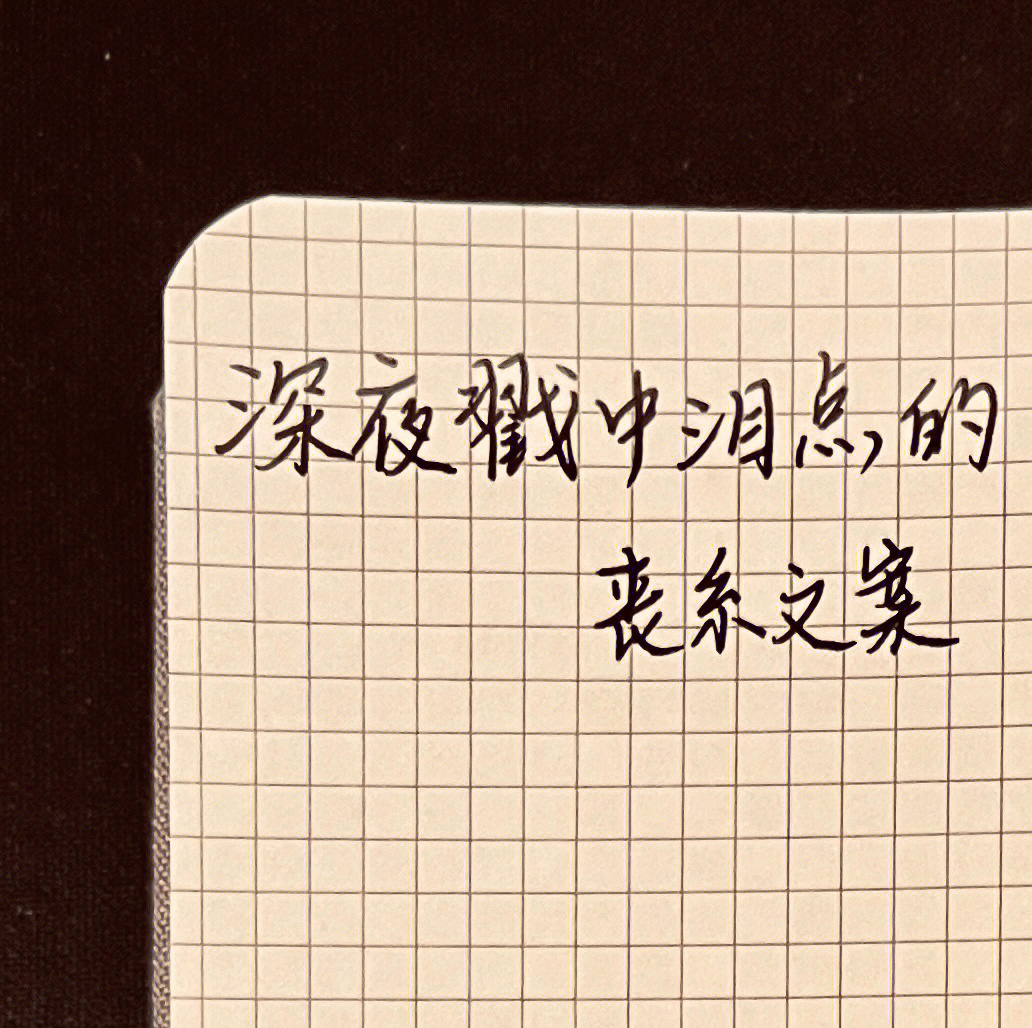 深夜戳中泪点的
丧系文案